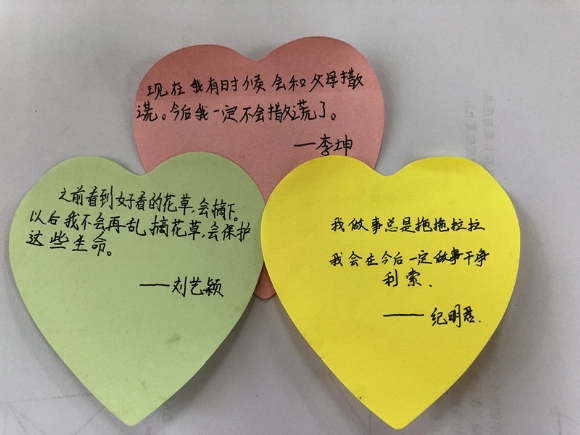 现在我有时候会和父母撒
谎。今后我一定不会撒谎了。
—李坤
之前看到好看的花草,会摘下。
以后我不会再乱摘花草,会保护
这些生命。
——刘艺颖
我做事总是拖拖拉拉
我会在今后一定做事干净
利索.
——纪明君.